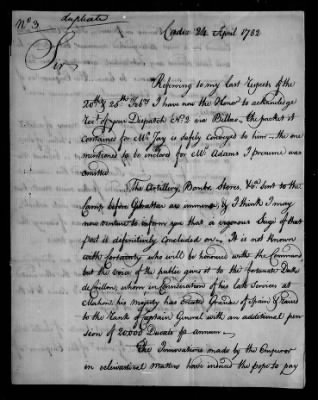 No. 3 duplicate
Cadiz 24 April 1782
Sir
Referring to my last respects of the
20th & 26th Febry I have now the Honor to acknowledge
Rect of your Dispatch No. 2 via Bilbao, the packet it
contained for Mr. Jay is safely conveyed to him — the one
mentioned to be inclosed for Mr Adams I presume was
omitted
The Artillery, Bombs, Stores, &ca. sent to the
Camp before Gibraltar are immense, & I think I may
now venture to inform you that a vigorous Siege of that
post is definitively concluded on — It is not known
with certainty who will be honoured with the Command
but the voice of the public gives it to the fortunate Duke
de Crillon, whom in Consideration of his late Services at
Mahon his majesty has created Grandee of Spain & raised
to the Rank of Captain General with an additional pen
sion of 2000 Ducats pr annum —
The Innovations made by the Emperor
in eclesiastical matters have induced the pope to pay